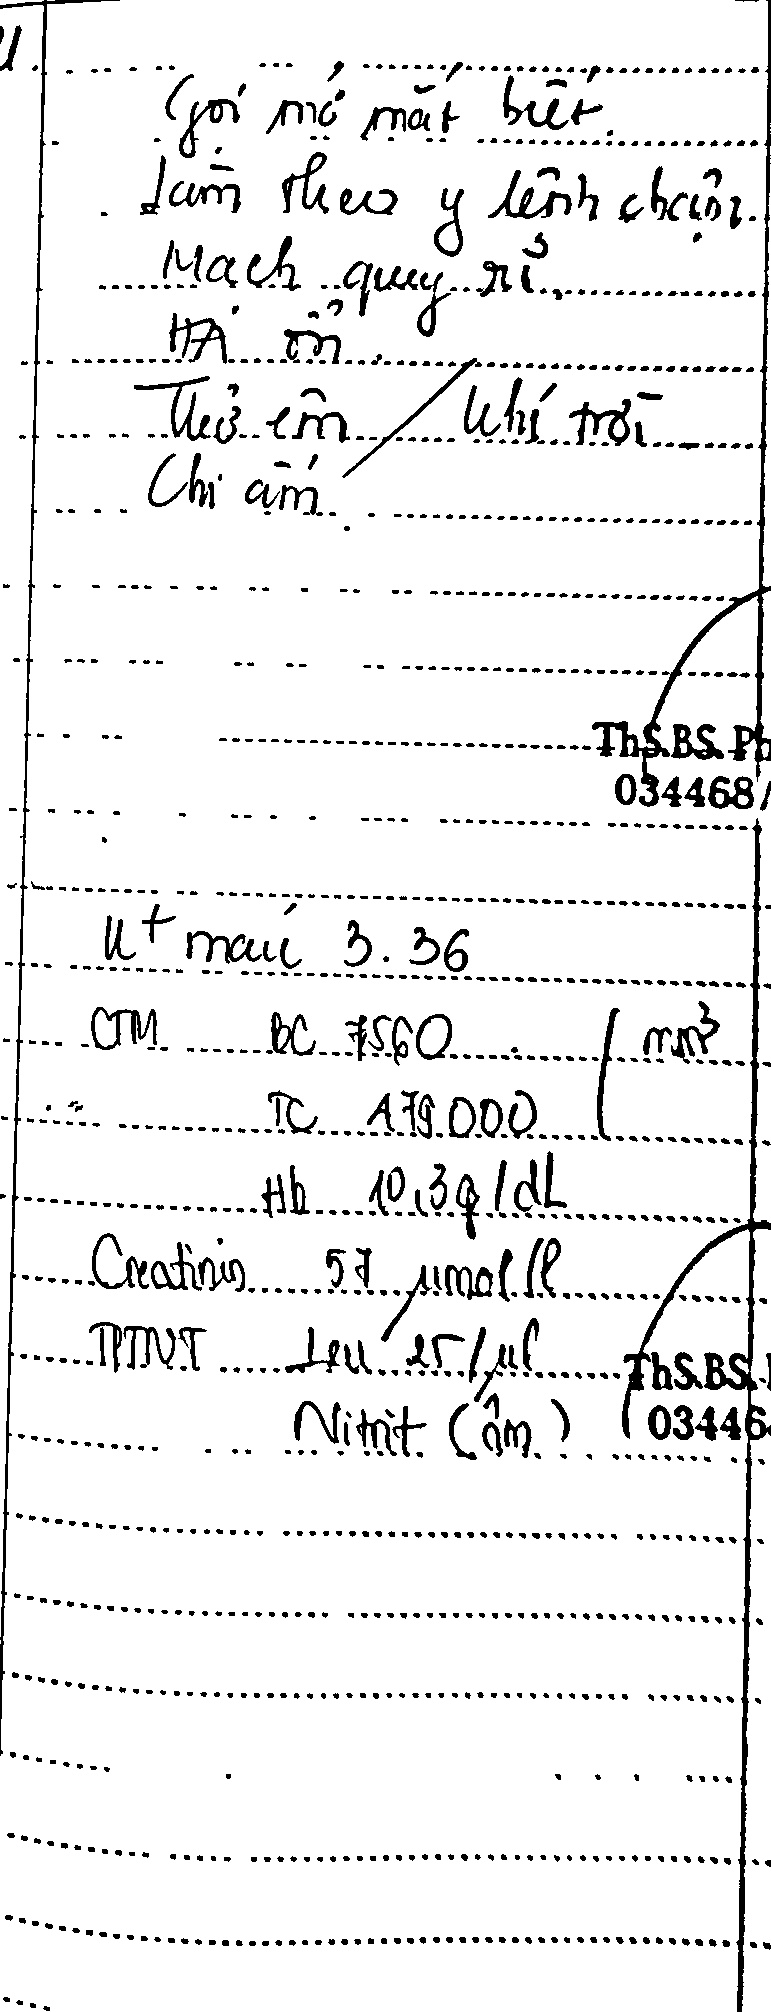 Gọi mở mắt biết.
Làm theo y lệnh chậm.
Mạch quay rõ,
HA ổn.
Thở êm / khí trời
Chi ấm
ThS.BS. Ph
034468/
K+ máu 3.36
CTM BC 7560 / mm³
TC 179.000
Hb 10,3g/dL
Creatinin 57 µmol/l
TPTNT Leu 25/µl
ThS.BS.
03446
Nitrit (âm)